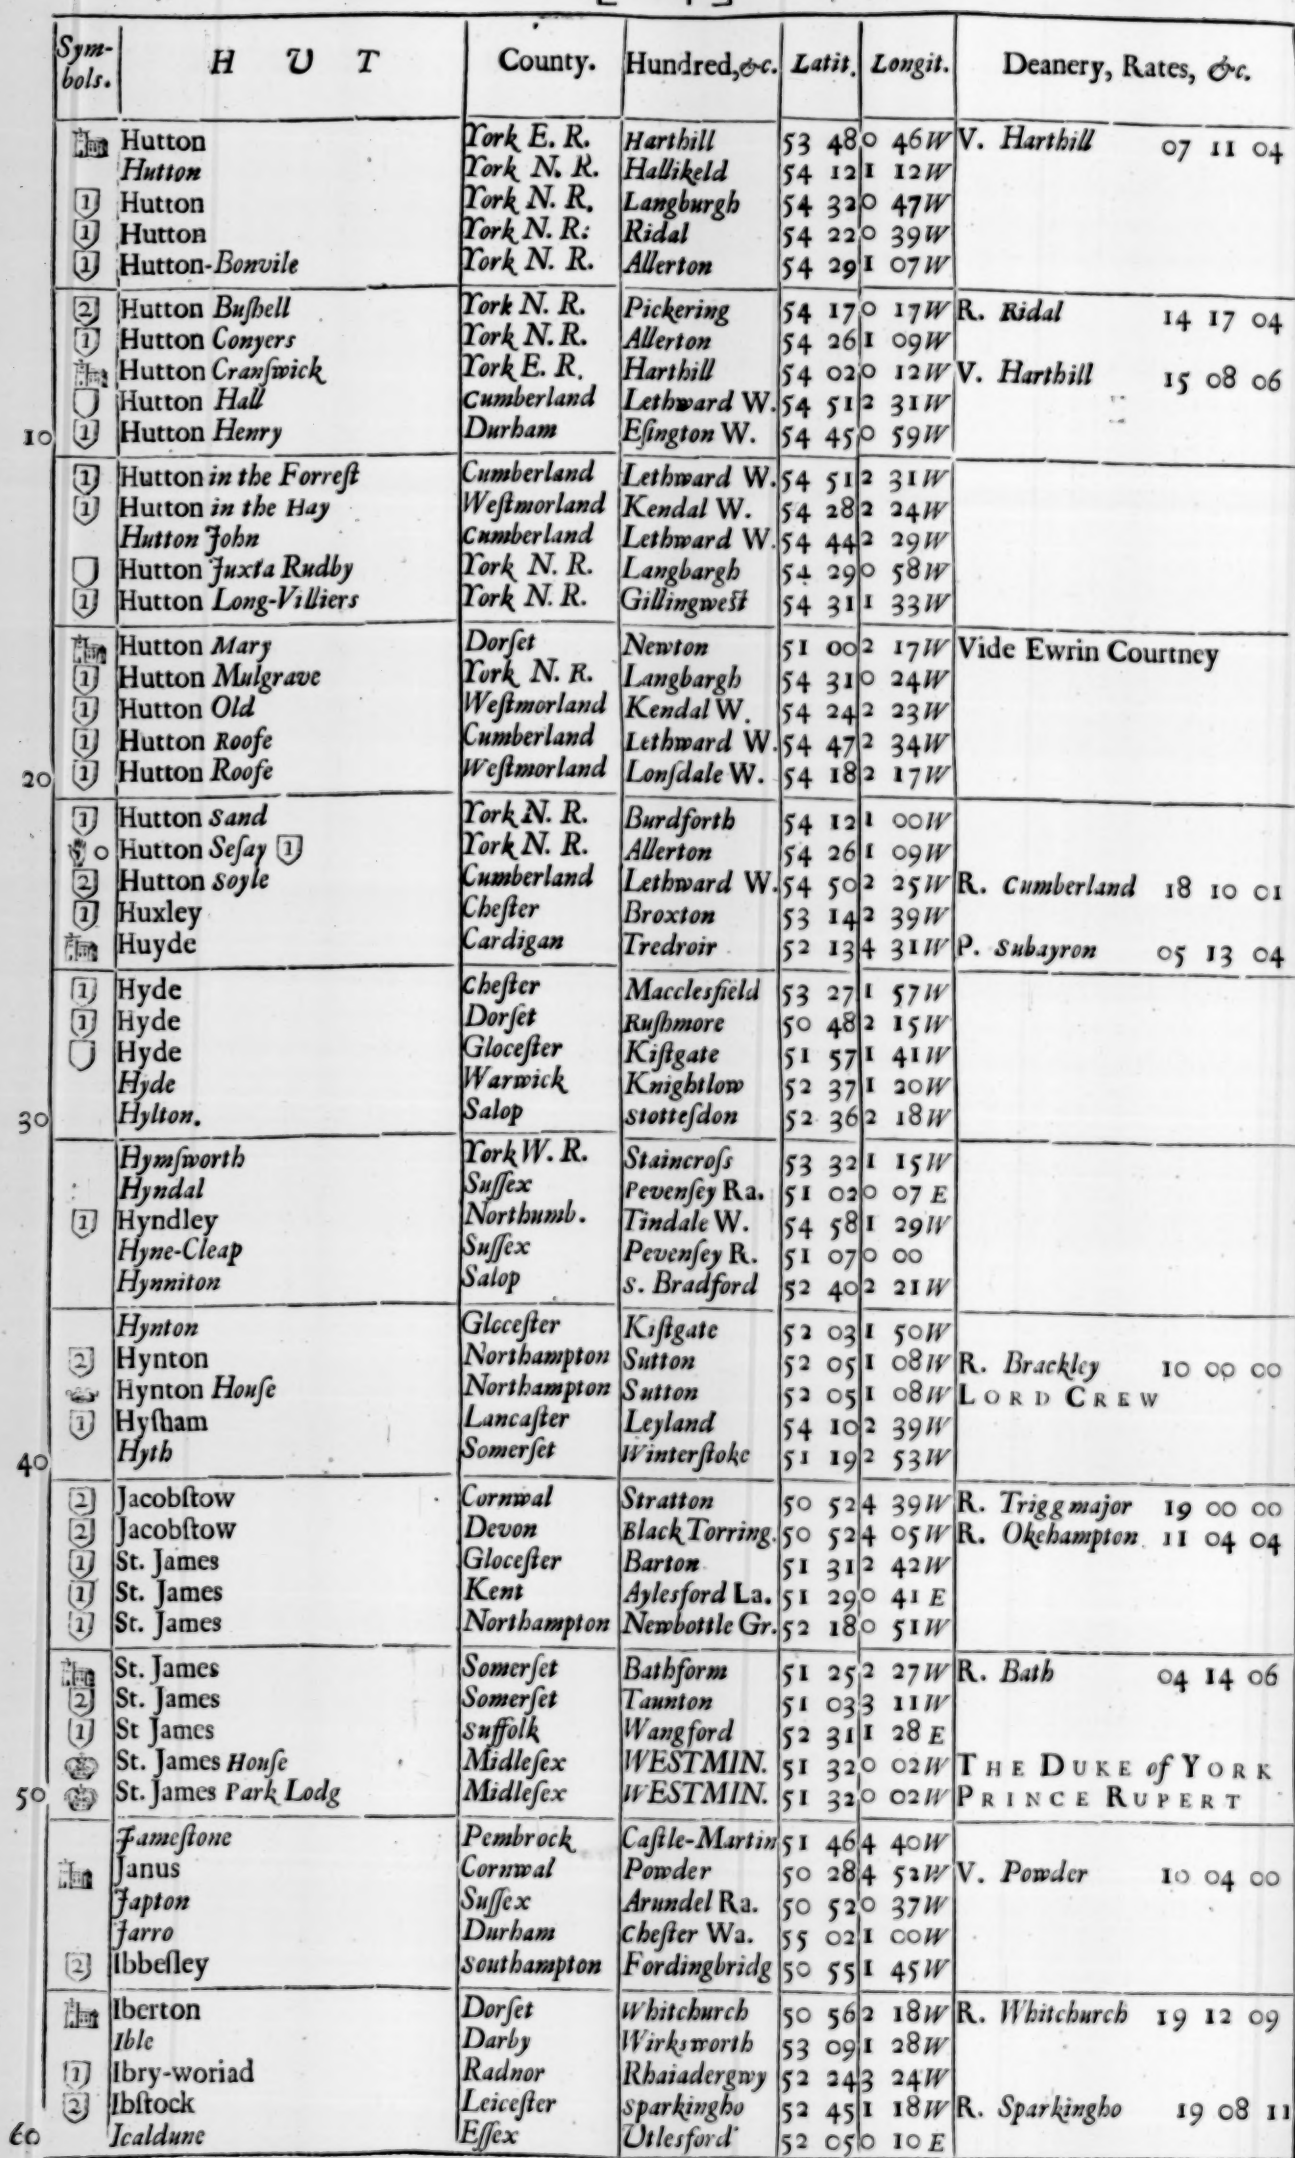 Sym-bols. H U T County. Hundred,&c. Latit. Longit. Deanery, Rates, &c.
Hutton York E. R. Harthill 53 48 0 46 W V. Harthill 07 11 04
Hutton York N. R. Hallikeld 54 12 1 12 W
1 Hutton York N. R. Langburgh 54 32 0 47 W
1 Hutton York N. R: Ridal 54 22 0 39 W
1 Hutton-Bonvile York N. R. Allerton 54 29 1 07 W
2 Hutton Buſhell York N. R. Pickering 54 17 0 17 W R. Ridal 14 17 04
1 Hutton Conyers York N. R. Allerton 54 26 1 09 W
Hutton Cranſwick York E. R. Harthill 54 02 0 12 W V. Harthill 15 08 06
Hutton Hall Cumberland Lethward W. 54 51 2 31 W
10 1 Hutton Henry Durham Eſington W. 54 45 0 59 W
1 Hutton in the Forreſt Cumberland Lethward W. 54 51 2 31 W
1 Hutton in the Hay Weſtmorland Kendal W. 54 28 2 24 W
Hutton John Cumberland Lethward W. 54 44 2 29 W
Hutton Juxta Rudby York N. R. Langbargh 54 29 0 58 W
1 Hutton Long-Villiers York N. R. Gillingweſt 54 31 1 33 W
Hutton Mary Dorſet Newton 51 00 2 17 W Vide Ewrin Courtney
1 Hutton Mulgrave York N. R. Langbargh 54 31 0 24 W
1 Hutton Old Weſtmorland Kendal W. 54 24 2 23 W
1 Hutton Roofe Cumberland Lethward W. 54 47 2 34 W
20 1 Hutton Roofe Weſtmorland Lonſdale W. 54 18 2 17 W
1 Hutton Sand York N. R. Burdforth 54 12 1 00 W
Hutton Seſay 1 York N. R. Allerton 54 26 1 09 W
2 Hutton Soyle Cumberland Lethward W. 54 50 2 25 W R. Cumberland 18 10 01
1 Huxley Cheſter Broxton 53 14 2 39 W
Huyde Cardigan Tredroir 52 13 4 31 W P. Subayron 05 13 04
1 Hyde Cheſter Macclesfield 53 27 1 57 W
1 Hyde Dorſet Ruſhmore 50 48 2 15 W
Hyde Gloceſter Kiftgate 51 57 1 41 W
Hyde Warwick Knightlow 52 37 1 20 W
30 Hylton. Salop Stotteſdon 52 36 2 18 W
Hymſworth York W. R. Staincroſs 53 32 1 15 W
Hyndal Suſſex Pevenſey Ra. 51 02 0 07 E
1 Hyndley Northumb. Tindale W. 54 58 1 29 W
Hyne-Cleap Suſſex Pevenſey R. 51 07 0 00
Hynniton Salop S. Bradford 52 40 2 21 W
Hynton Gloceſter Kiftgate 52 03 1 50 W
2 Hynton Northampton Sutton 52 05 1 08 W R. Brackley 10 00 00
Hynton Houſe Northampton Sutton 52 05 1 08 W LORD CREW
1 Hyſham Lancaſter Leyland 54 10 2 39 W
40 Hyth Somerſet Winterſtoke 51 19 2 53 W
2 Jacobſtow Cornwal Stratton 50 52 4 39 W R. Trigg major 19 00 00
2 Jacobſtow Devon Black Torring. 50 52 4 05 W R. Okehampton 11 04 04
1 St. James Gloceſter Barton 51 31 2 42 W
1 St. James Kent Aylesford La. 51 29 0 41 E
1 St. James Northampton Newbottle Gr. 52 18 0 51 W
St. James Somerſet Bathform 51 25 2 27 W R. Bath 04 14 06
2 St. James Somerſet Taunton 51 03 3 11 W
1 St James Suffolk Wangford 52 31 1 28 E
St. James Houſe Midleſex WESTMIN. 51 32 0 02 W THE DUKE of YORK
50 St. James Park Lodg Midleſex WESTMIN. 51 32 0 02 W PRINCE RUPERT
Jameſtone Pembrock Caſtle-Martin 51 46 4 40 W
Janus Cornwal Powder 50 28 4 52 W V. Powder 10 04 00
Japton Suſſex Arundel Ra. 50 52 0 37 W
Jarro Durham Cheſter Wa. 55 02 1 00 W
2 Ibbeſley Southampton Fordingbridg 50 55 1 45 W
Iberton Dorſet Whitchurch 50 56 2 18 W R. Whitchurch 19 12 09
Ible Darby Wirksworth 53 09 1 28 W
1 Ibry-woriad Radnor Rhaiadergwy 52 24 3 24 W
2 Ibſtock Leiceſter Sparkingho 52 45 1 18 W R. Sparkingho 19 08 11
60 Icaldune Eſſex Utlesford 52 05 0 10 E